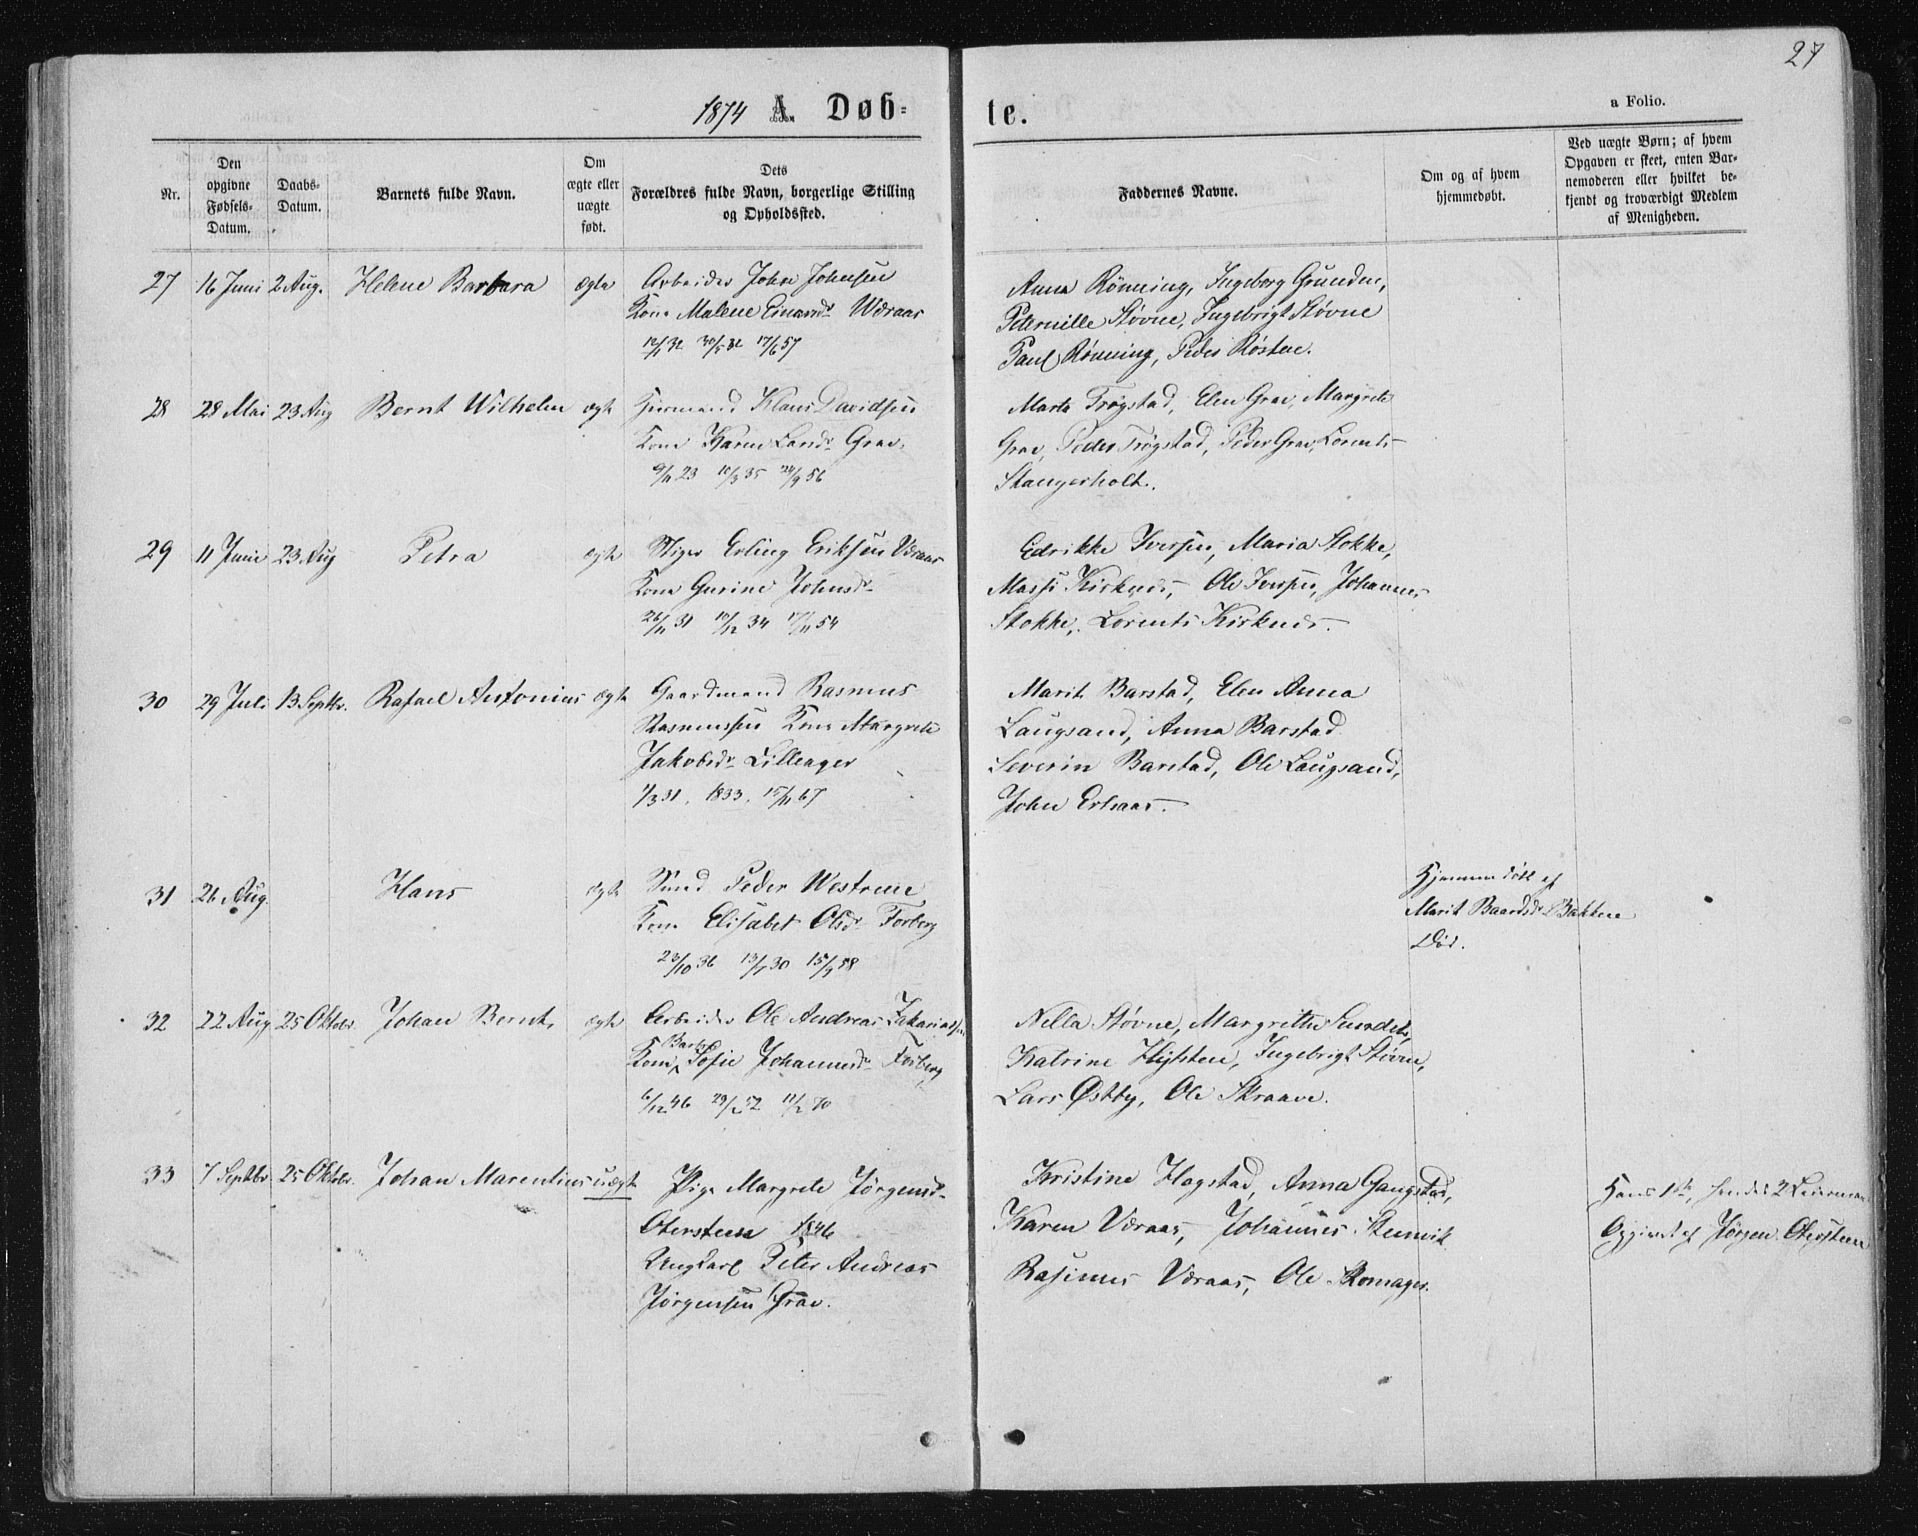 27
1874 A. Døb-
te.
a Folio.
Nr.
Den
opgivne
Fødsels-
Datum.
Daabs-
Datum.
Barnets fulde Navn.
Om
ægte eller
uægte
født.
Dets
Forældres fulde Navn, borgerlige Stilling
og Opholdssted.
Faddernes Navne.
Om og af hvem
hjemmedøbt.
Ved uægte Børn; af hvem
Opgaven er skeet, enten Bar-
nemoderen eller hvilket be-
kjendt og troværdigt Medlem
af Menigheden.
27 16 Juni 2 Aug. Helene Barbara ægte Arbeider Johan Johnsen
Kone Malene Einarsdr Væraas
12/1 32 30/5 32 17/6 57
Anna Rönning, Ingeborg Grunden,
Peternille Støvne, Ingebrigt Støvne
Paul Rönning, Peder Røsten.
28 28 Mai 23 Aug Bernt Wilhelm ægte Huusmand Klaus Davidsen
Kone Karen Larsdr Grav.
9/11 23 10/3 35 24/9 56
Marta Trøgstad, Elen Grav, Margrete
Grav, Peder Trøgstad, Peder Grav, Lorents
Stangerholt.
29 11 Juni 23 Aug Petra ægte Stiger Erling Eriksen Væraas
Kone Gurine Johnsdr
26/11 31 10/12 34 17/11 54
Edrikke Iversen, Maria Stokke,
Massi Kirknes, Ole Iversen, Johannes
Stokke, Lorents Kirknes.
30 29 Juli 13 Septbr. Rafael Antonius ægte Gaardmand Rasmus
Rasmussen Kone Margrete
Jakobsdr Lilleager
1/3 31. 1833. 15/11 67
Marit Barstad, Elen Anna
Laugsand, Anna Barstad
Severin Barstad, Ole Laugsand,
John Erhaas.
31 26 Aug. Hans ægte Smed Peder Westrum
Kone Elisabet Olsdr Forberg
23/10 36 13/7 30 15/9 58
Hjemmedöbt af
Marit Baardsdr Bakken
Död.
32 22 Aug 25 Oktobr. Johan Bernt ægte Arbeider Ole Andreas Zakariassen
Kone Sofie Johannesdr Forberg
6/12 46 29/2 52 11/2 70
Nella Støvne, Margrethe Sundet,
Katrine Hylsten, Ingebrigt Støvne,
Lars Østby, Ole Skraave.
33 7 Septbr. 25 Oktobr. Johan Marentius uægte Pige Margrete Jörgensdr
Otersteen 1846
Ungkarl Peter Andreas
Jörgensen Grav.
Kristine Hagstad, Anna Gangstad,
Karen Væraas, Johannes Stenvik
Rasmus Væraas, Ole Romager.
Hans 1ste, hendes 2 Leiermaal
Opgivet af Jörgen Otersteen